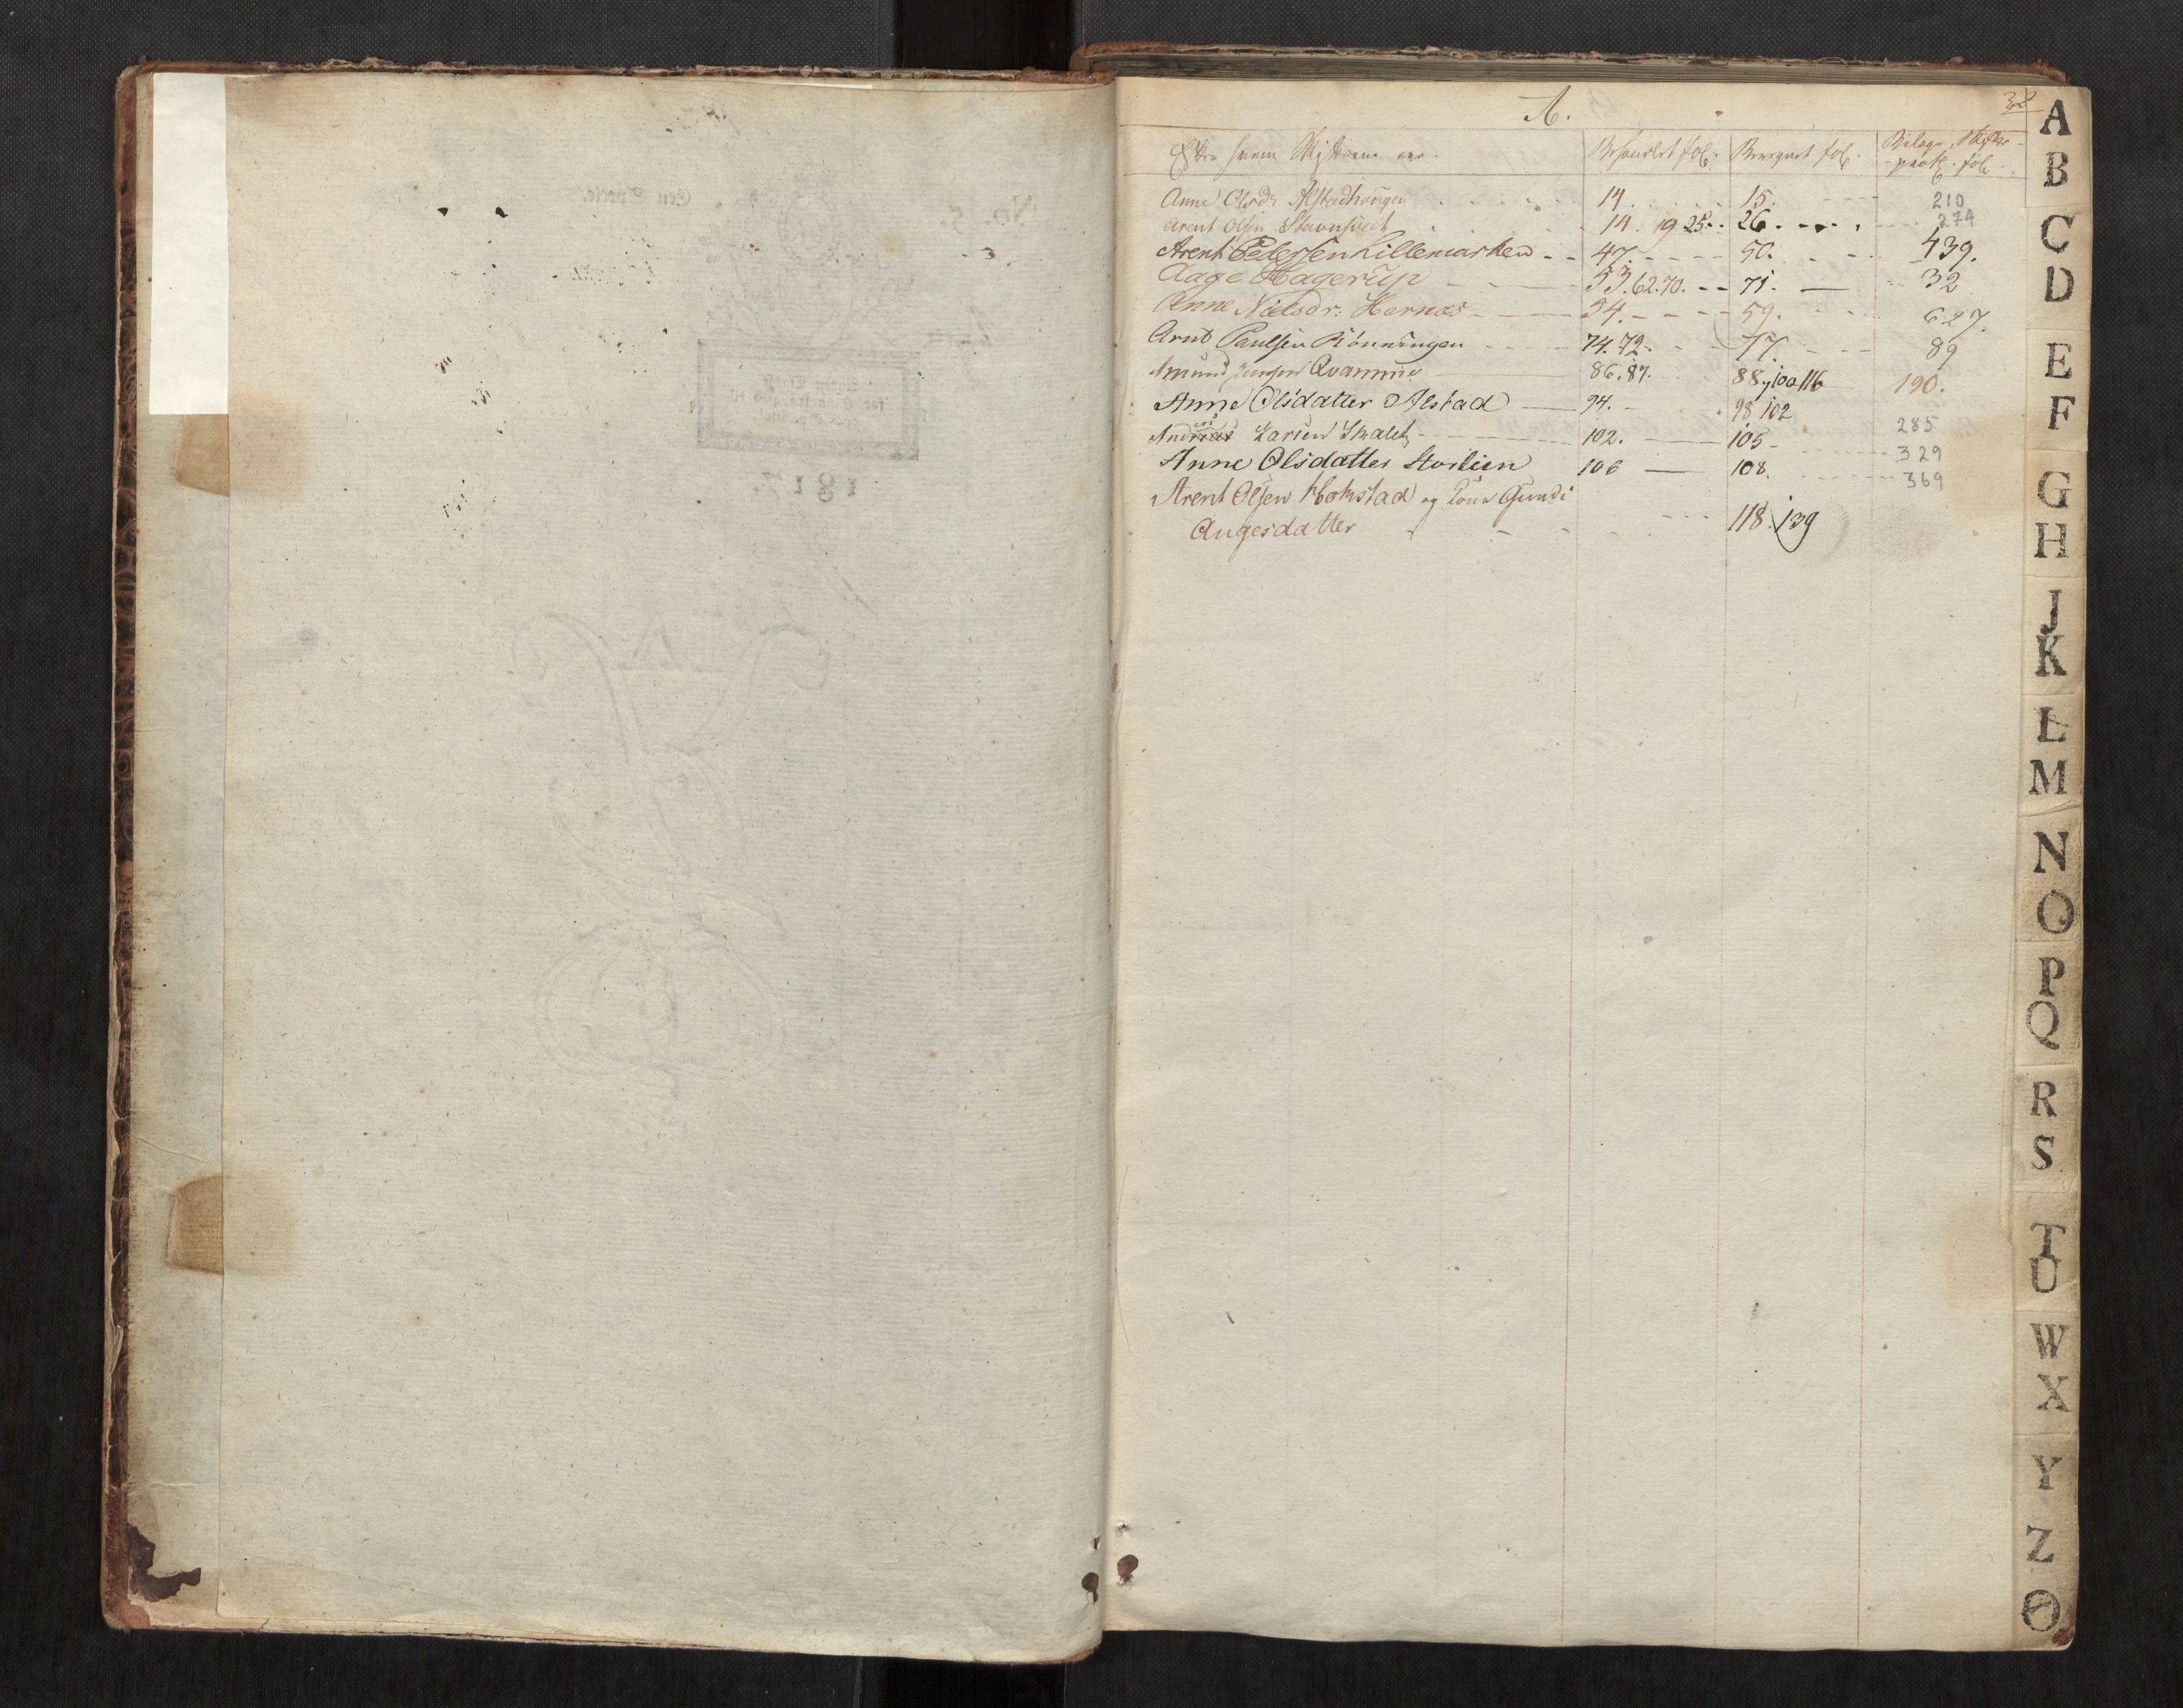 A.
Efter hvem Skifterne ere. Behandlet fol: Bereignet fol. Bilage Skifte-
-protk: fol:
Anne Olsdr Alstadhaugen 14. 15. 210
Arent Olsen Stavnsveet 14. 19 25. 26. 274
Arent Pedersen Lillemarken 47. 50. 439.
Aage Hagerup 53. 62. 70. 71. 32
Anne Nielsdr: Hernæs 54. 59. 627.
Arnt Paulsen Rönningen 74. 72. 77. 89
Amund Jensen Qvamme 86. 87. 88, 100 116 190.
Anne Olsdatter Alstad 94. 98 102 285
Andreas Larsen Skalet 102. 105 329
Anne Olsdatter Storlien 106 108. 369
Arent Olsen Hokstad og Kone Gundi
Augesdatter 118. 139
A
B
C
D
E
F
G
H
J
K
L
M
N
O
P
Q
R
S
T
U
W
X
Y
Z
Ø